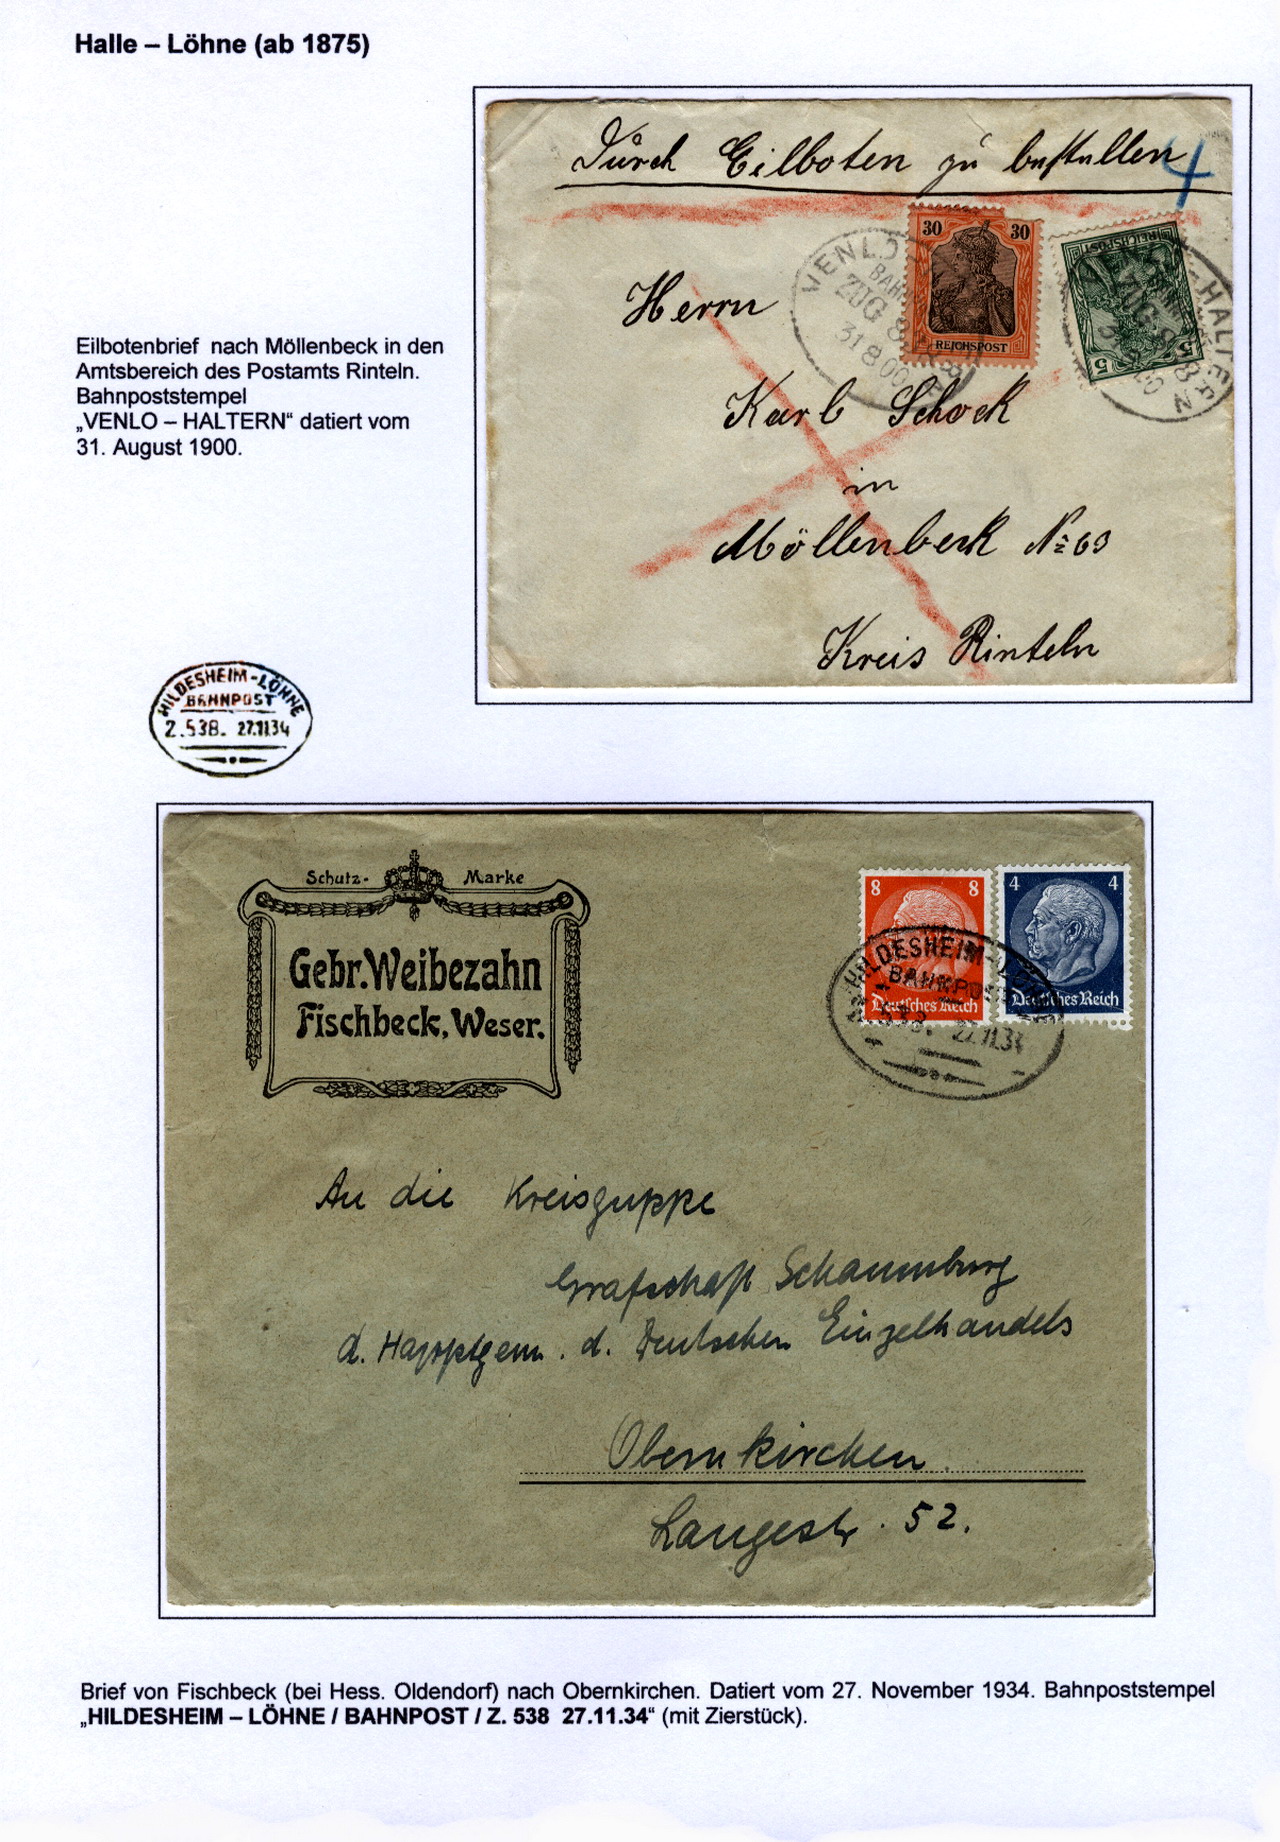 Halle – Löhne (ab 1875)
Durch Eilboten zu bestellen
4
30 30
REICHSPOST
REICHSPOST
5 5
VENLO
ZUG 8
31 8 00
HALTERN
Herrn
Karl Schock
in
Möllenbeck No 63
Kreis Rinteln
Eilbotenbrief nach Möllenbeck in den
Amtsbereich des Postamts Rinteln.
Bahnpoststempel
„VENLO – HALTERN“ datiert vom
31. August 1900.
HILDESHEIM-LÖHNE
BAHNPOST
Z.538. 27.11.34
Schutz- Marke
Gebr. Weibezahn
Fischbeck, Weser.
8 8
Deutsches Reich
4 4
Deutsches Reich
HILDESHEIM-LÖHNE
BAHNPOST
538. 27.11.34
An die Kreisguppe
Grafschaft Schaumburg
d. Hauptgem. d. Deutschen Einzelhandels
Obernkirchen.
Langestr. 52.
Brief von Fischbeck (bei Hess. Oldendorf) nach Obernkirchen. Datiert vom 27. November 1934. Bahnpoststempel
„HILDESHEIM – LÖHNE / BAHNPOST / Z. 538 27.11.34“ (mit Zierstück).